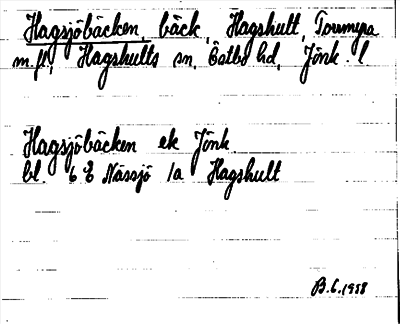 Hagsjöbäcken, bäck, Hagshult,
m.fl., Hagshults sn, Östbo hd, Jönk. l
Hagsjöbäcken ek Jönk
bl. 6 E Nässjö 1a Hagshult
B.G. 1958